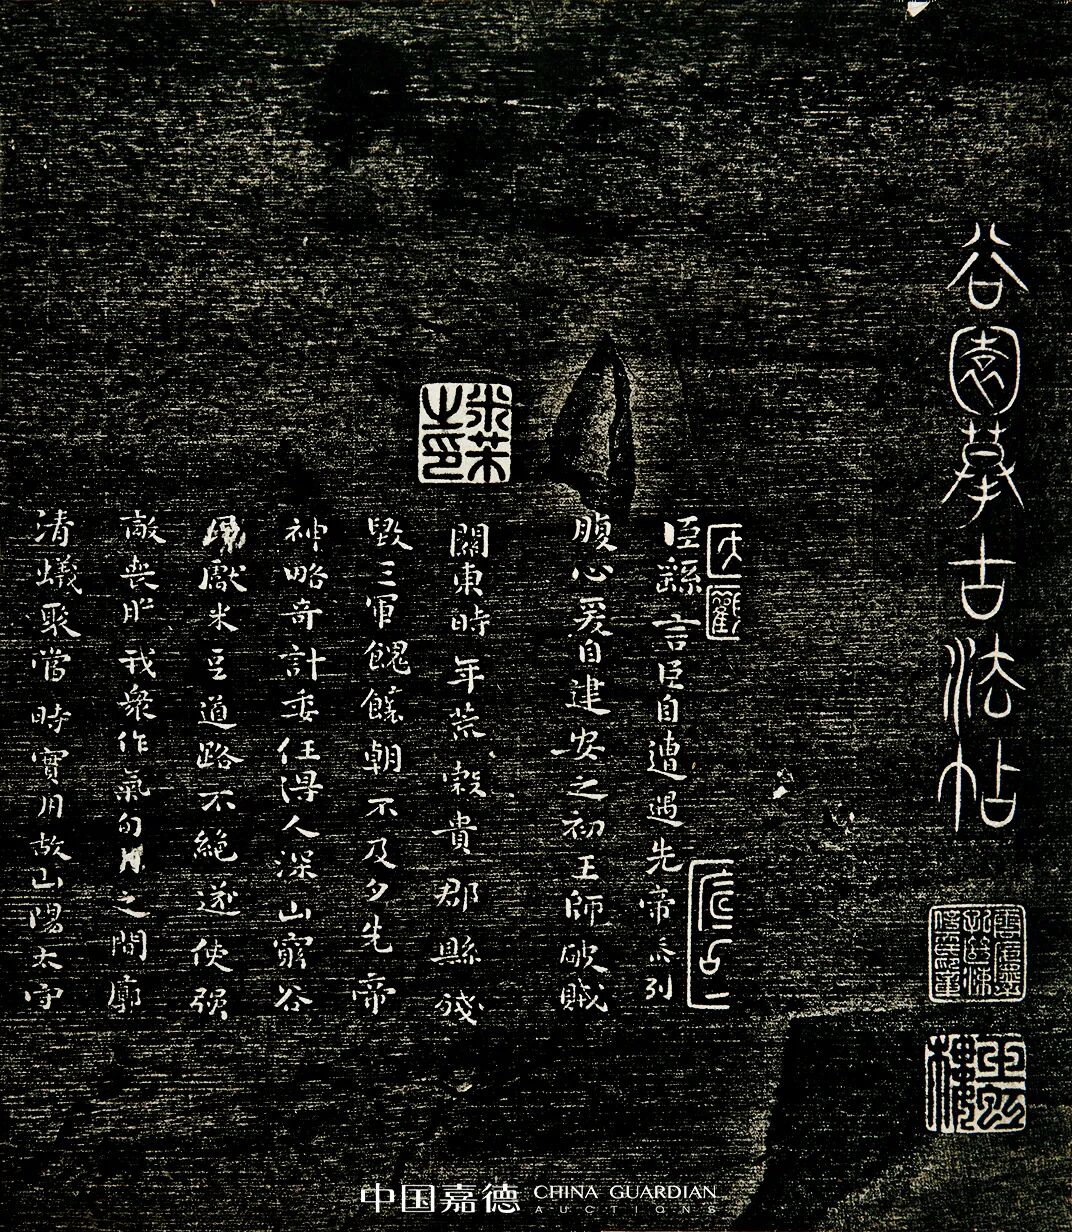 谷園摹古法帖
臣繇言臣自遭遇先帝忝列
腹心爰自建安之初王師破賊
關東時年荒穀貴郡縣殘
毀三軍餽饟朝不及夕先帝
神略奇計委任得人深山窮谷
獻米豆道路不絕遂使强
敵喪膽我衆作氣旬月之間廓
清蟻聚當時實用故山陽太守
米芾之印
中国嘉德 CHINA GUARDIAN
AUCTIONS